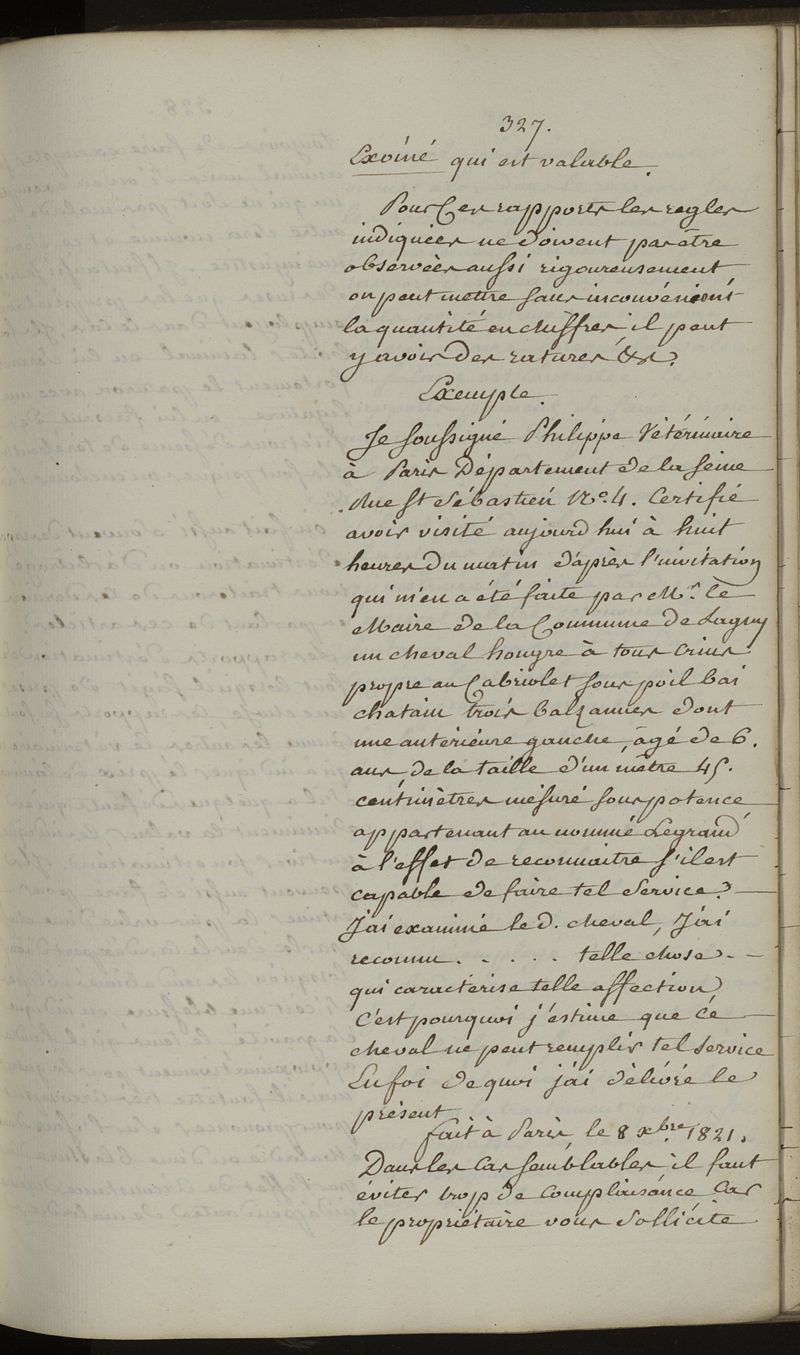 327.
Exoiné qui est valable.
Pour Ces rapports les regles
indiquées ne doivent pas être
observées aussi rigoureusement
on peut mettre sans inconvénient
la quantité en chiffres il peut
y avoir des ratures &c.
Exemple.
Je soussigné Philippe Vétérinaire
à Paris Département de la Seine
Rue St Sébastien No. 4. Certifié
avoir visité aujourd'hui à huit
heures du matin d'après l'invitation
qui m'en a été faite par Mr. Le
Maire de la Commune de Lagny
un cheval hongre à tous crins
propre au Cabriolet sous poil bai
chatain trois balzannes dont
une antérieure gauche, agé de 6.
ans de la taille d'un mètre 45.
centimètres mésuré sous potence
appartenant au nommé Legrand
à l'effet de reconnaitre s'il est
capable de faire tel Service.
J'ai examiné le d. cheval, J'ai
reconnu . . . . . telle chose
qui caractérise telle affection
C'est pourquoi j'estime que Ce
cheval ne peut remplir tel Service
En foi de quoi j'ai délivré le
présent
fait à Paris, le 8 xbre. 1821.
Dans les Cas semblables il faut
éviter trop de Complaisance Car
le propriétaire vous Sollicite